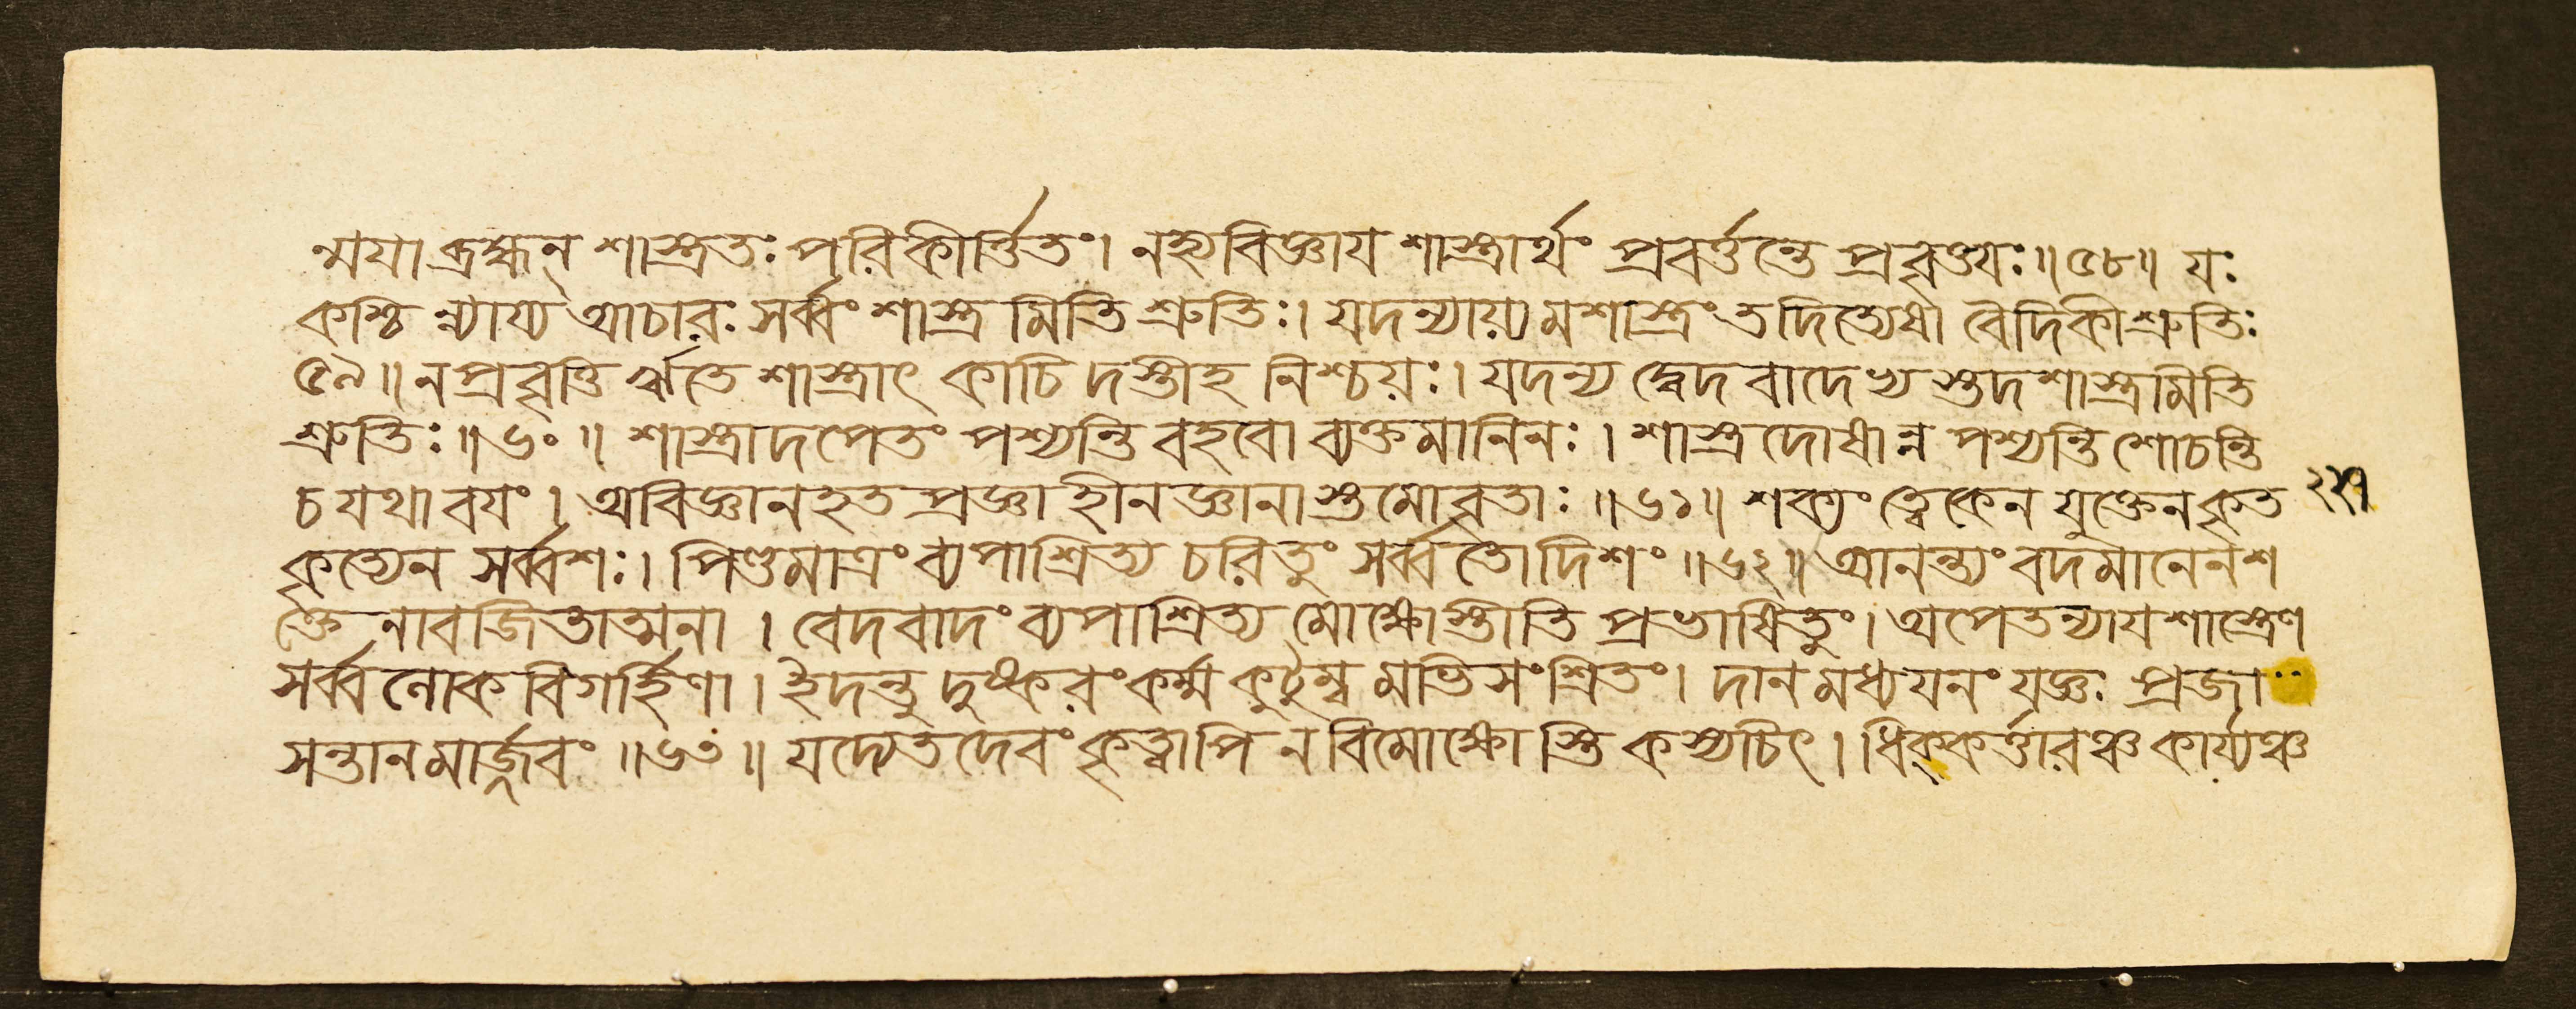 ন্ময়া ব্রহ্মন্ শাস্ত্রতঃ পরিকীর্ত্তিতং। নহ্যবিজ্ঞায শাস্ত্রার্থং প্রবর্ত্তন্তে প্রবৃত্তযঃ॥৫৮॥ যঃ
কশ্চি ন্ন্যায্য আচারঃ সর্ব্বং শাস্ত্র মিতি শ্রুতিঃ। যদন্যায়্য মশাস্ত্রং তদিত্যেষা বৈদিকীশ্রুতিঃ
৫৯॥ নপ্রবৃত্তি র্ঋতে শাস্ত্রাৎ কাচি দস্তীহ নিশ্চয়ঃ। যদন্য দ্বেদ বাদেভ্য স্তদশাস্ত্রমিতি
শ্রুতিঃ॥৬০॥ শাস্ত্রাদপেতং পশ্যন্তি বহবো ব্যক্তমানিনঃ। শাস্ত্রদোষান্ন পশ্যন্তি শোচন্তি
চ যথা বযং। অবিজ্ঞানহত প্রজ্ঞা হীনজ্ঞানাস্তমোবৃতাঃ॥৬১॥ শক্যং ত্বেকেন যুক্তেনকৃত
কৃত্যেন সর্ব্বশঃ। পিণ্ডমাত্রং ব্যপাশ্রিত্য চরিতুং সর্ব্বতোদিশং॥৬২॥ আনন্ত্যং বদমানেনশ
ক্তেনাবজিতাত্মনা। বেদবাদং ব্যপাশ্রিত্য মোক্ষোস্তীতি প্রভাষিতুং। অপেতন্যাযশাস্ত্রেণ
সর্ব্বলোক বিগর্হিণা। ইদন্তু দুষ্করংকর্ম্ম কুটুম্ব মাভিসংশ্রিতং। দানমধ্যযনং যজ্ঞঃ প্রজা
সন্তানমার্জ্জবং॥৬৩॥ যদ্যেতদেবং কৃত্বাপি নবিমোক্ষো স্তি কস্যচিৎ। ধিক্কর্ত্তারঞ্চ কার্য্যঞ্চ